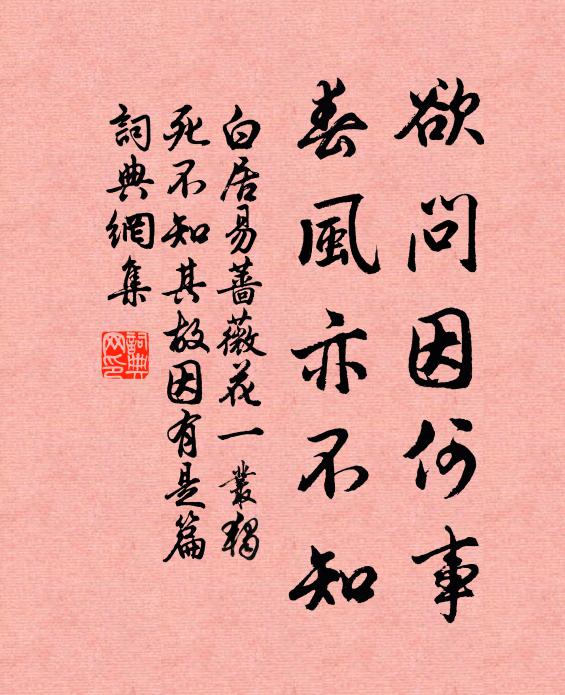 欲问因何事
春風亦不知
白居易薔薇花一叢獨
死不知其故因有是篇
詞典網集
詞典网印